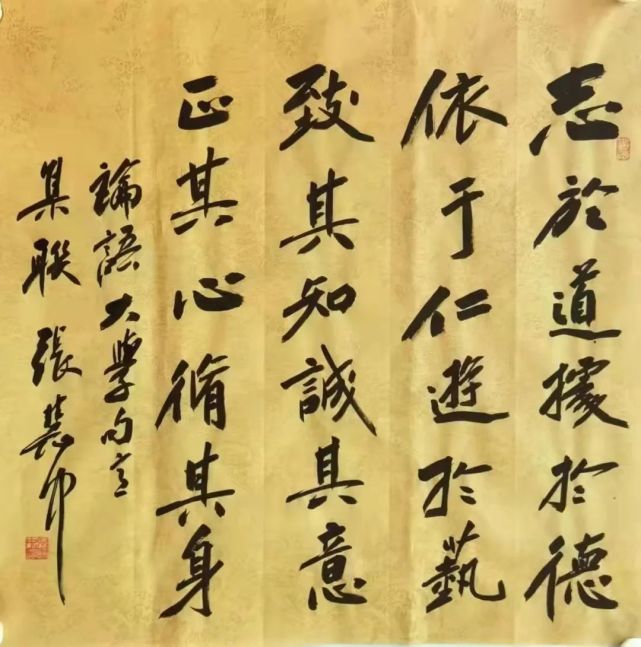 志於道據於德
依于仁遊於藝
致其知誠其意
正其心脩其身
論語大學句
集聯 張